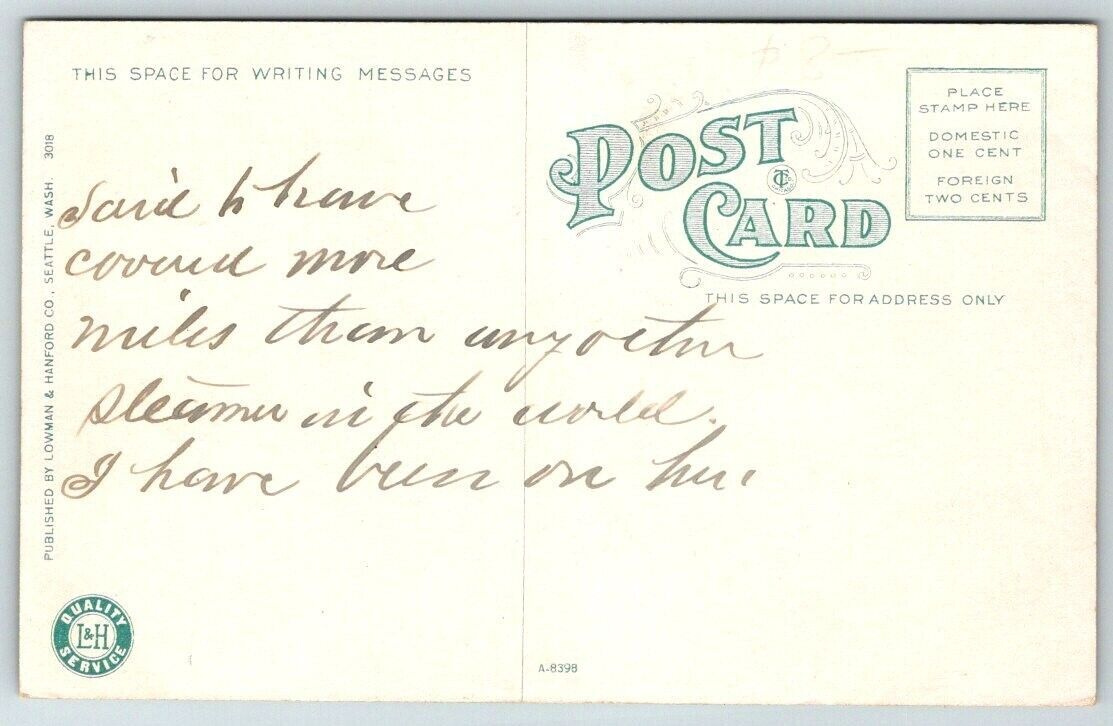 THIS SPACE FOR WRITING MESSAGES
Said to have
covered more
miles than any other
steamer in the world.
I have been on her
PUBLISHED BY LOWMAN & HANFORD CO., SEATTLE, WASH. 3018
QUALITY
L&H
SERVICE
POST
CARD
THIS SPACE FOR ADDRESS ONLY
PLACE
STAMP HERE
DOMESTIC
ONE CENT
FOREIGN
TWO CENTS
A-8398